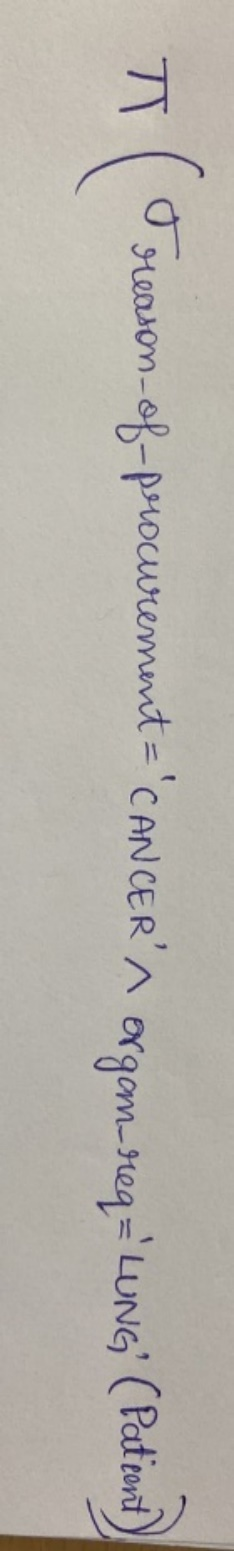 π (σ reason-of-procurement = 'CANCER' ∧ organ-req = 'LUNG' (Patient))